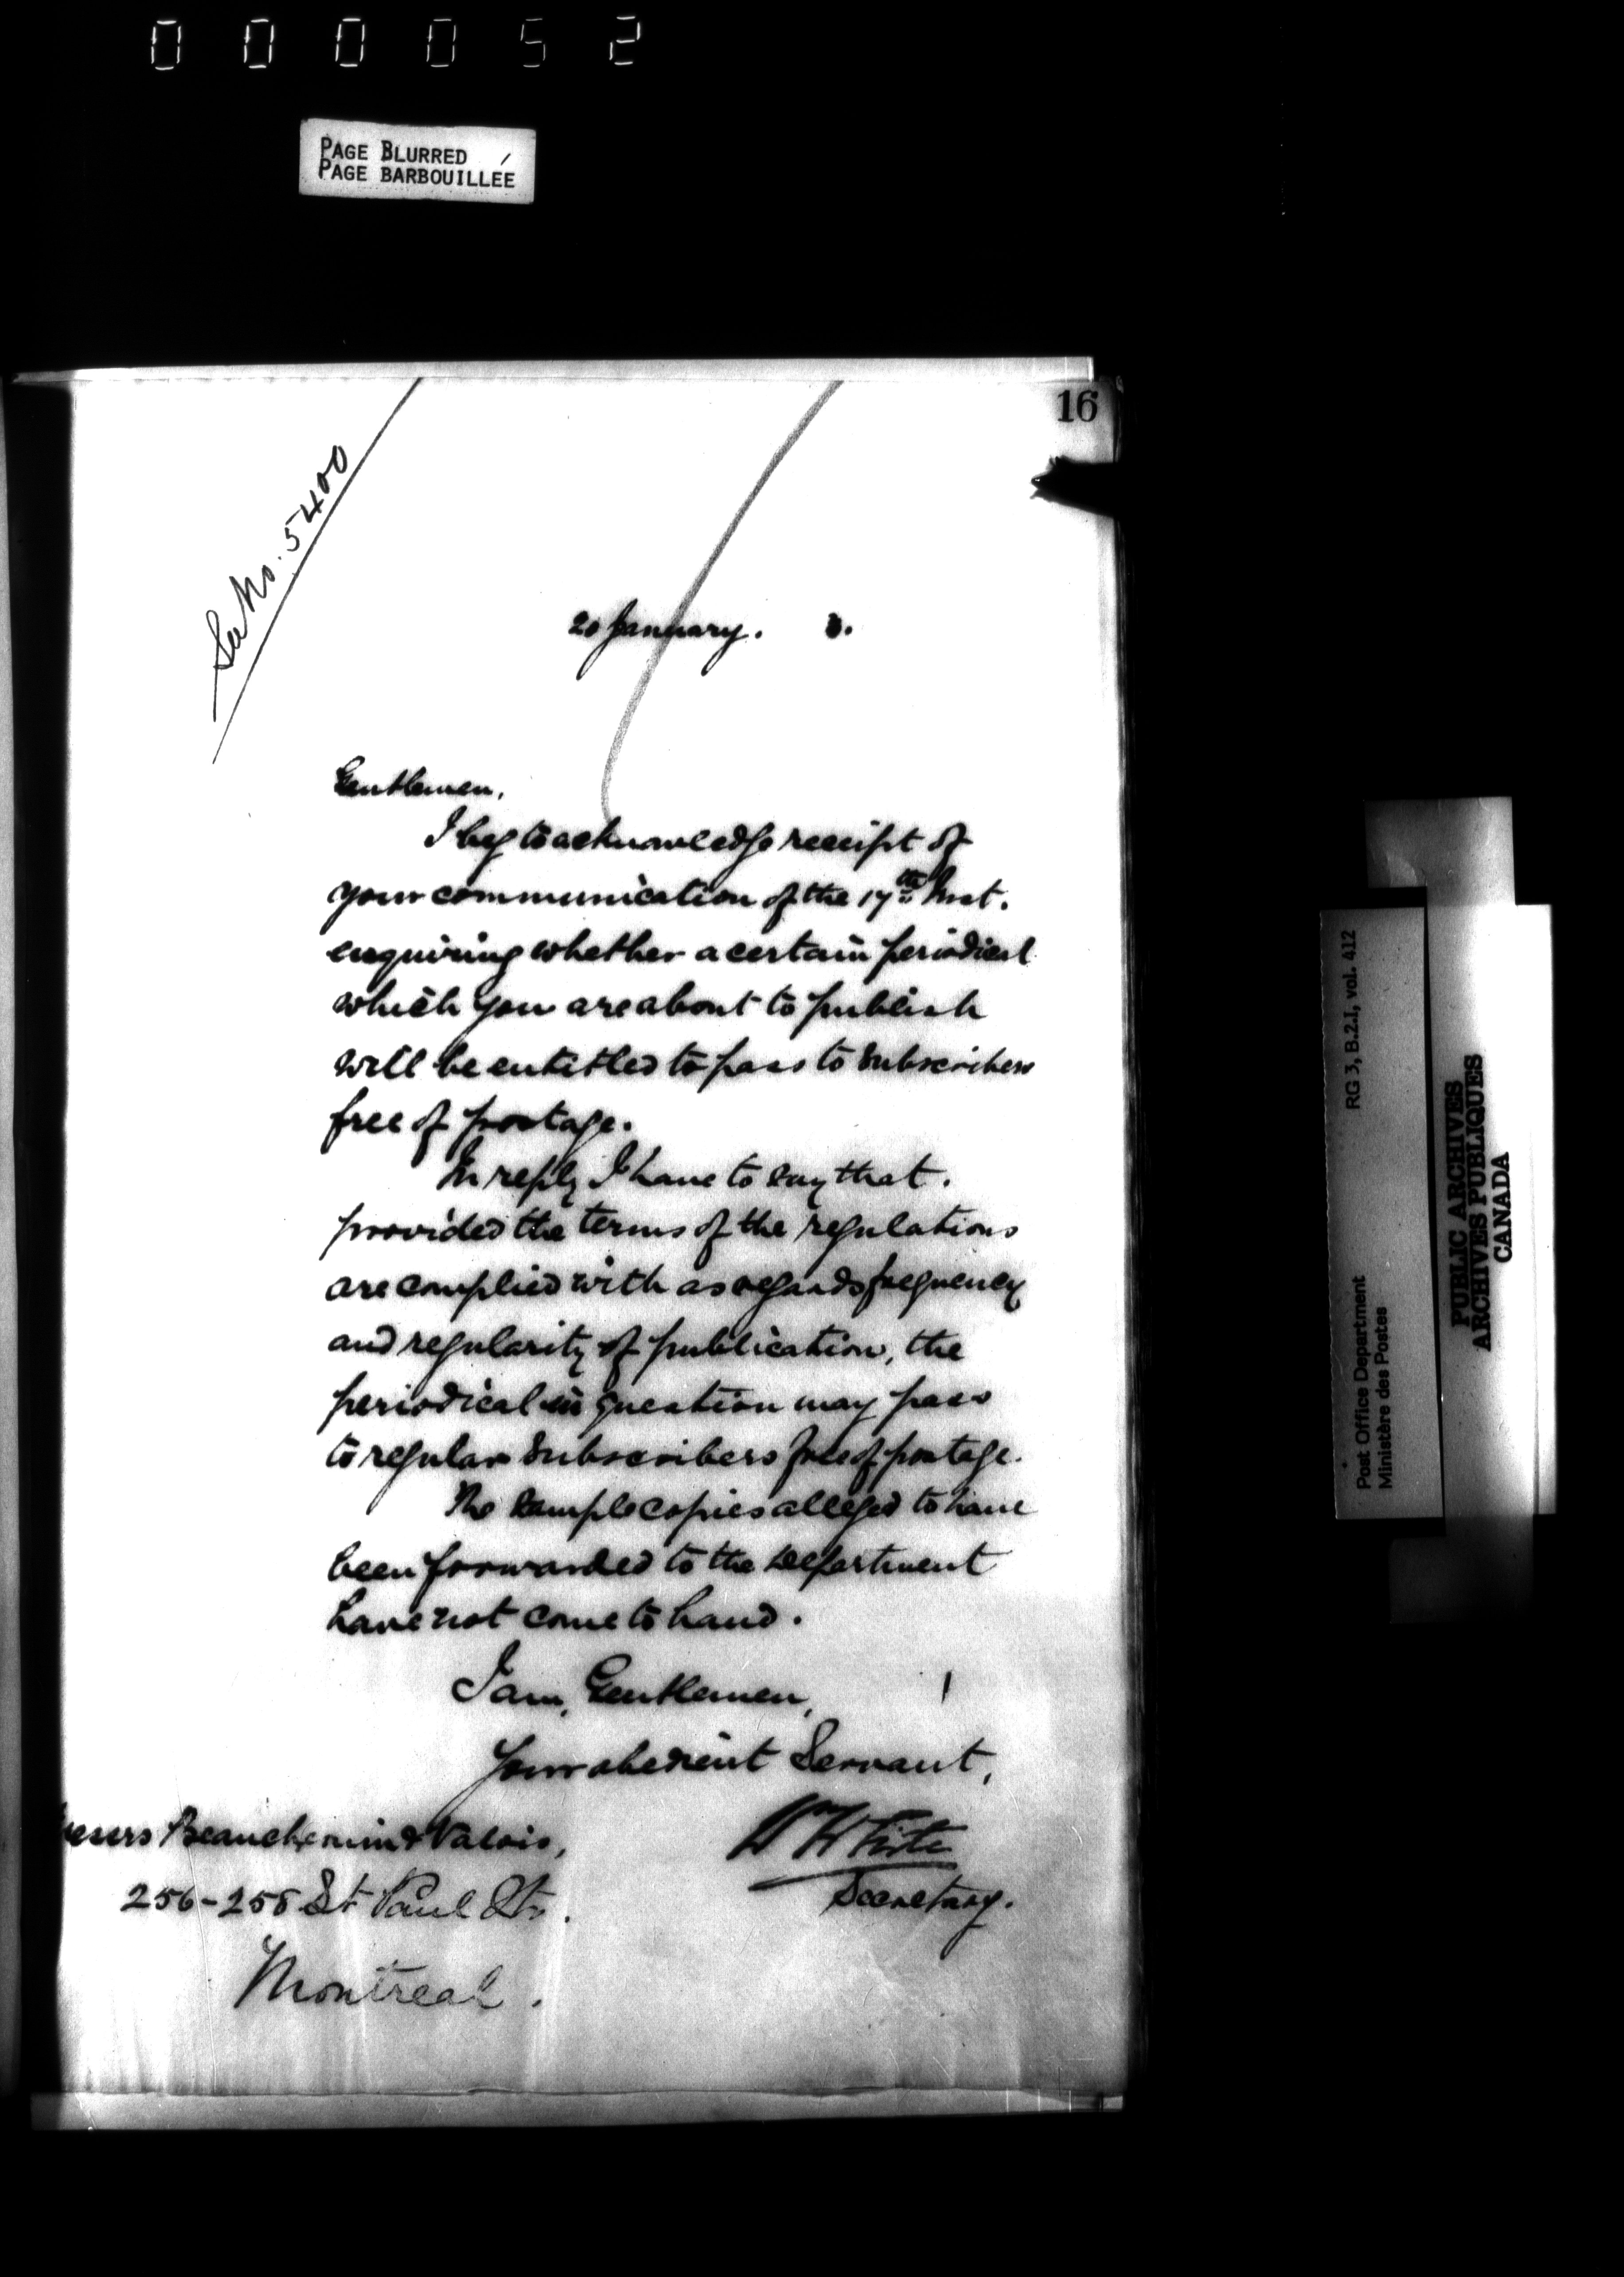 000052
PAGE BLURRED
PAGE BARBOUILLÉE
16
See No. 5400
20 January. 3.
Gentlemen,
I beg to acknowledge receipt of
your communication of the 17th Inst.
enquiring whether a certain periodical
which you are about to publish
will be entitled to pass to subscribers
free of postage.
In reply I have to say that.
provided the terms of the regulations
are complied with as regards frequency
and regularity of publication, the
periodical in question may pass
to regular subscribers free of postage.
The sample copies alleged to have
been forwarded to the Department
have not come to hand.
I am, Gentlemen,
Your obedient Servant,
Wm White
Secretary.
Messrs Beauchemin & Valois,
256-258 St Paul St.
Montreal.
RG 3, B.2.1, vol. 412
Post Office Department
Ministère des Postes
PUBLIC ARCHIVES
ARCHIVES PUBLIQUES
CANADA